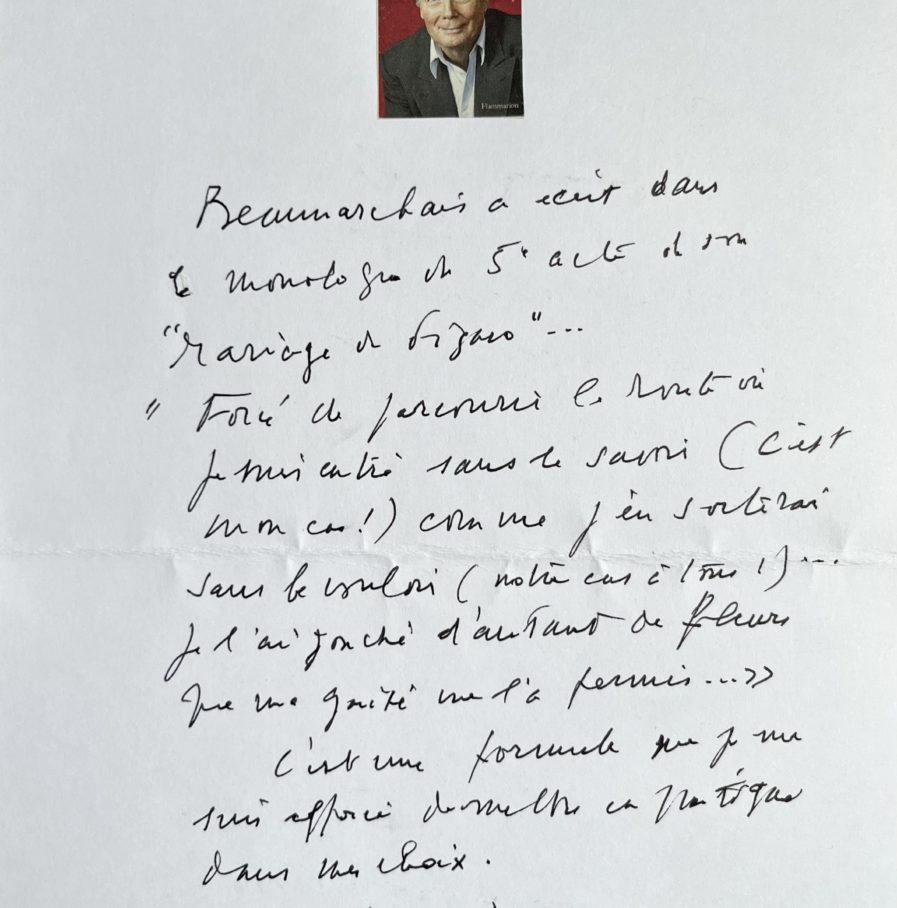 Flammarion
Beaumarchais a écrit dans
le monologue du 5e acte de son
"Mariage de Figaro"...
" Forcé de parcourir la route où
je suis entré sans le savoir (c'est
mon cas!) comme j'en sortirai
sans le vouloir (notre cas à tous!)...
je l'ai jonché d'autant de fleurs
que ma gaité me l'a permis...»
C'est une formule que je me
suis efforcé de mettre en pratique
dans mes choix.